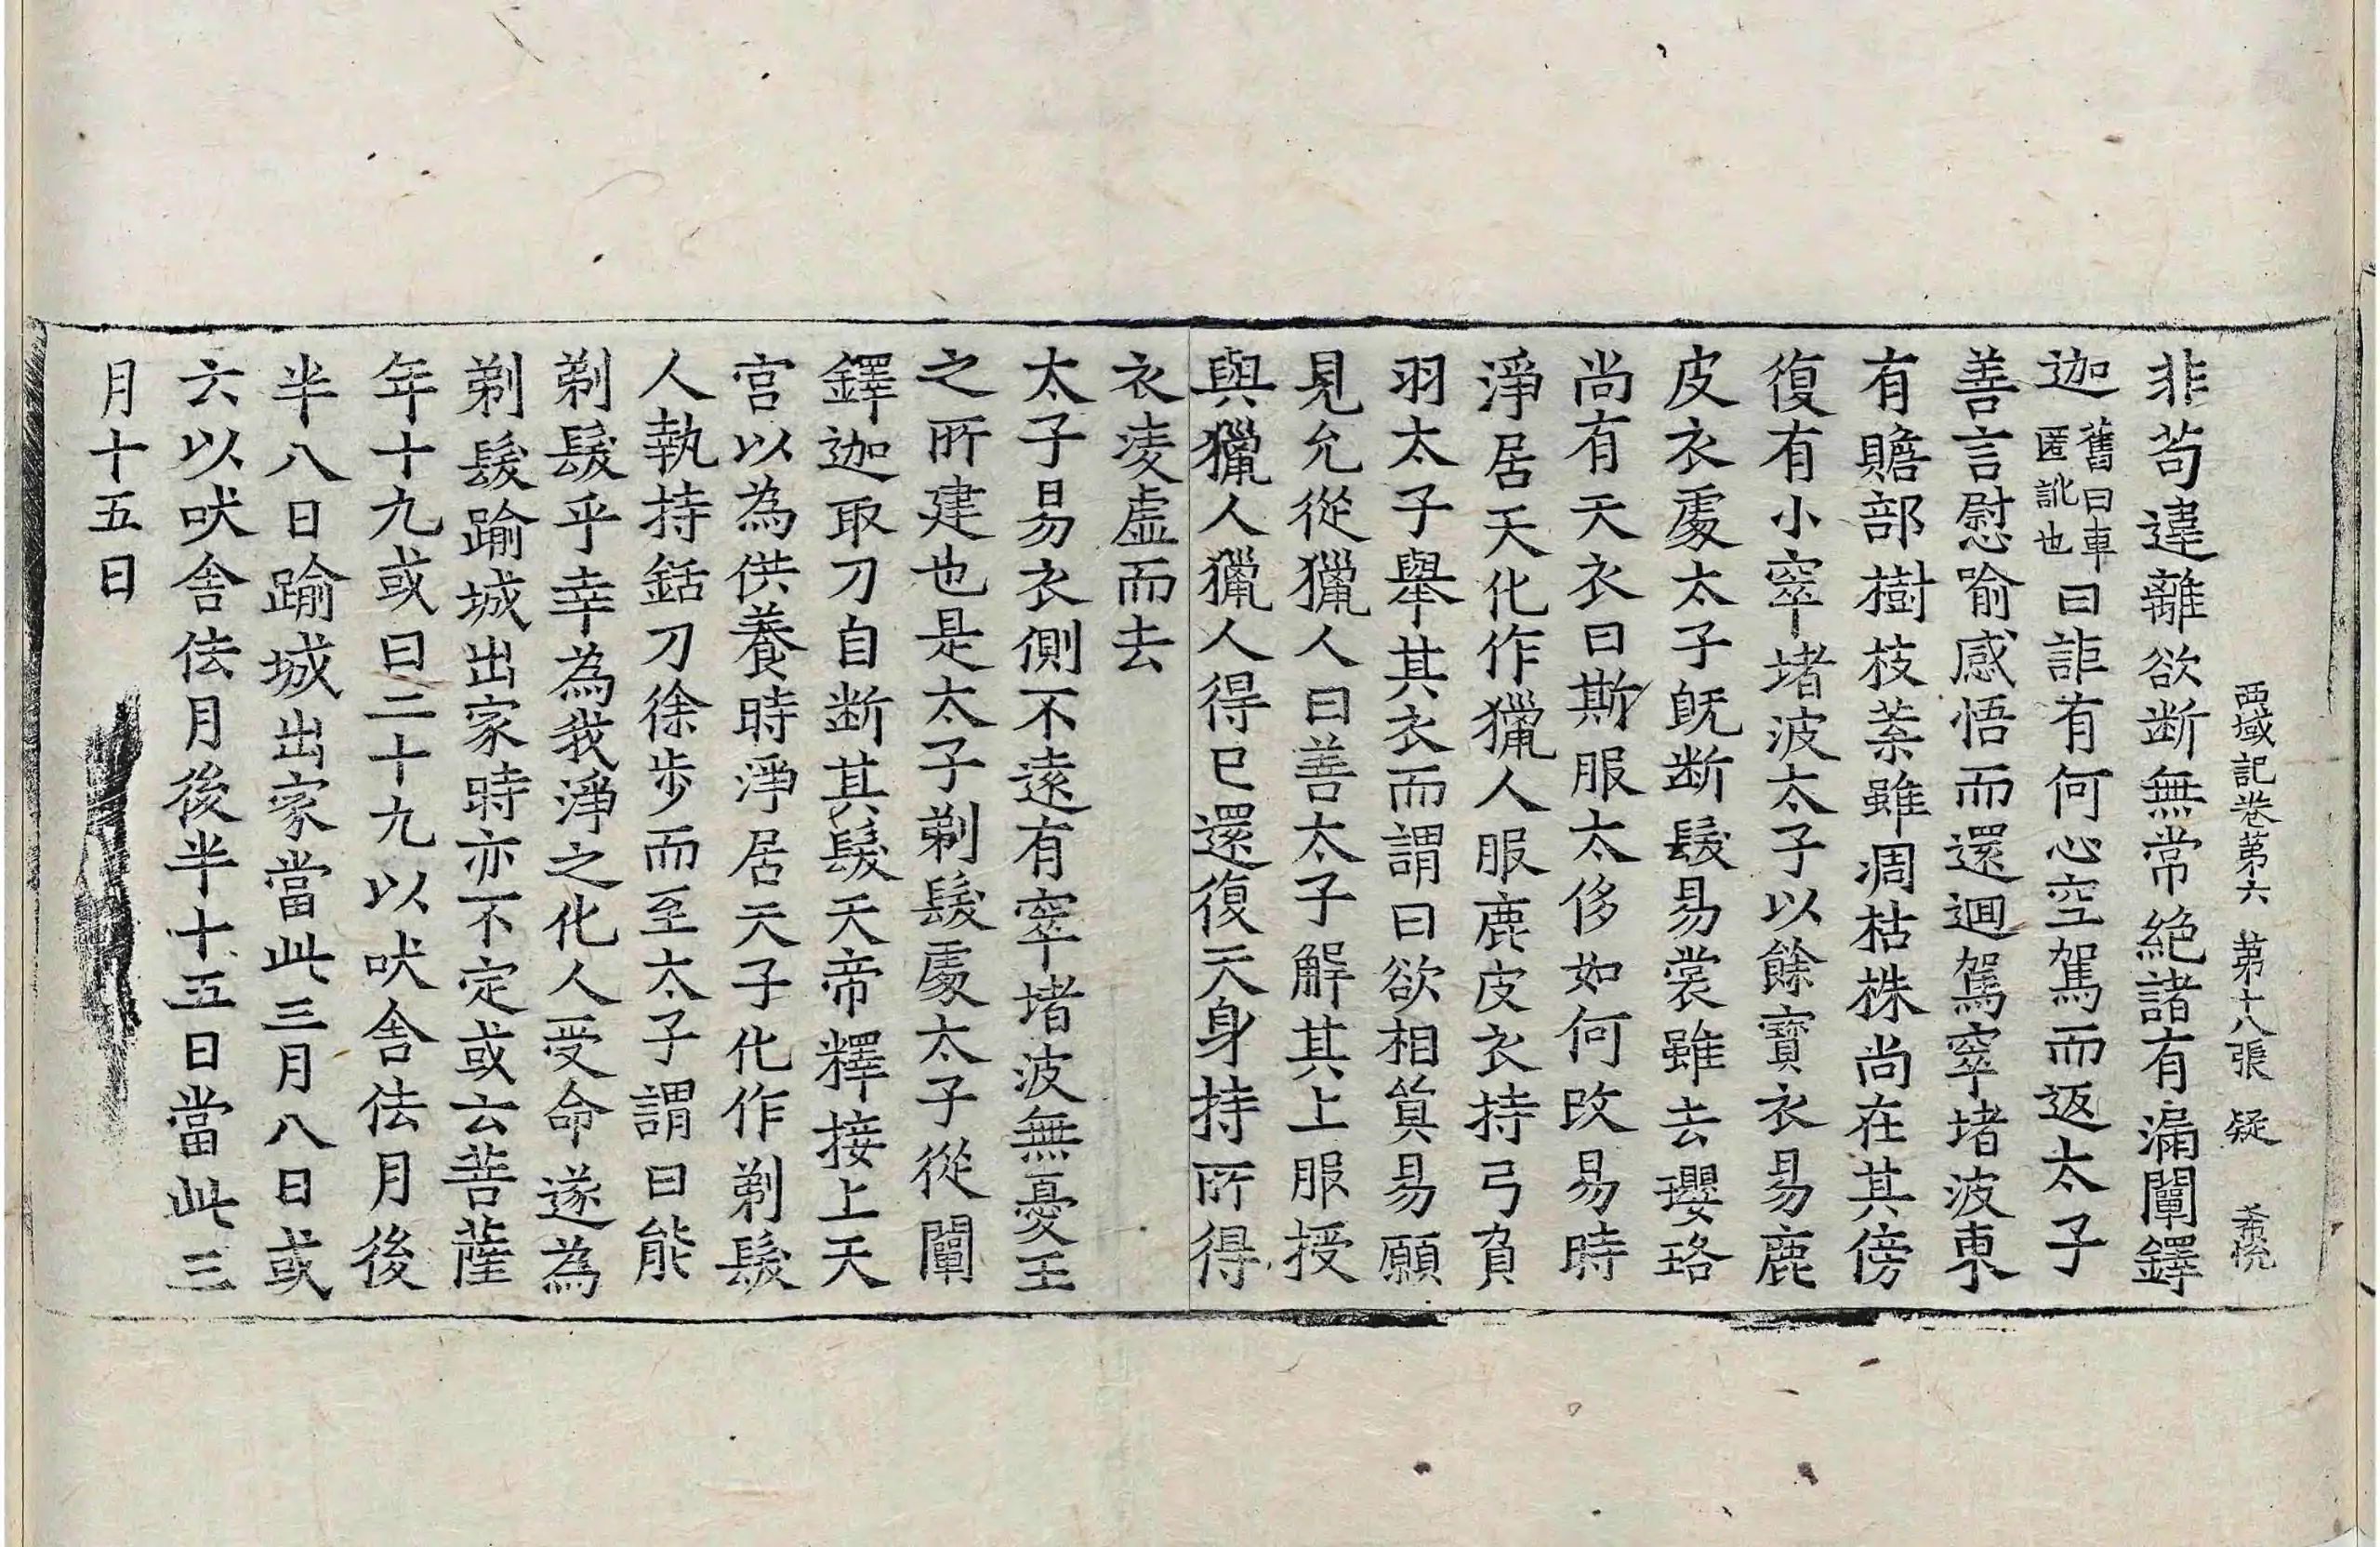 西域記卷第六　第十八張　疑　希悅
非苟違離欲断無常絶諸有漏闡鐸
迦舊曰車匿訛也曰詎有何心空駕而返太子
善言慰喻感悟而還迴駕窣堵波東
有贍部樹枝葉雖凋枯株尚在其傍
復有小窣堵波太子以餘寶衣易鹿
皮衣處太子既断髮易裳雖去瓔珞
尚有天衣曰斯服太侈如何改易時
淨居天化作獵人服鹿皮衣持弓負
羽太子舉其衣而謂曰欲相貿易願
見允從獵人曰善太子解其上服授
與獵人獵人得已還復天身持所得
衣淩虛而去
太子易衣側不遠有窣堵波無憂王
之所建也是太子剃髮處太子從闡
鐸迦取刀自断其髮天帝釋接上天
宮以為供養時淨居天子化作剃髮
人執持銛刀徐步而至太子謂曰能
剃髮乎幸為我淨之化人受命遂為
剃髮踰城出家時亦不定或云菩薩
年十九或曰二十九以吠舍佉月後
半八日踰城出家當此三月八日或
六以吠舍佉月後半十五日當此三
月十五日